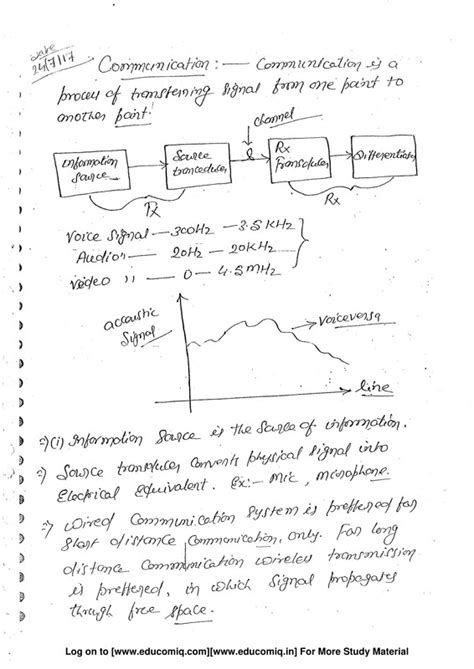 Date
24/7/17
Communication :— Communication is a
process of transferring signal from one point to
another point.
channel
Information
Source
Source
Transducer
Rx
Transducer
Differentiator
Tx
Rx
Voice Signal — 300Hz — 3.5 KHz
Audio — 20Hz — 20KHz
Video 〃 — 0 — 4.5 MHz
accoustic
Signal
Voice versa
line
⇒(i) Information Source is the Source of information.
⇒ Source transducer converts physical signal into
Electrical equivalent. Ex:- Mic, microphone.
⇒ Wired Communication System is preffered for
Short distance Communication, only. For long
distance Communication wireless transmission
is preffered, in which signal propagates
through free space.
Log on to [www.educomiq.com][www.educomiq.in] For More Study Material